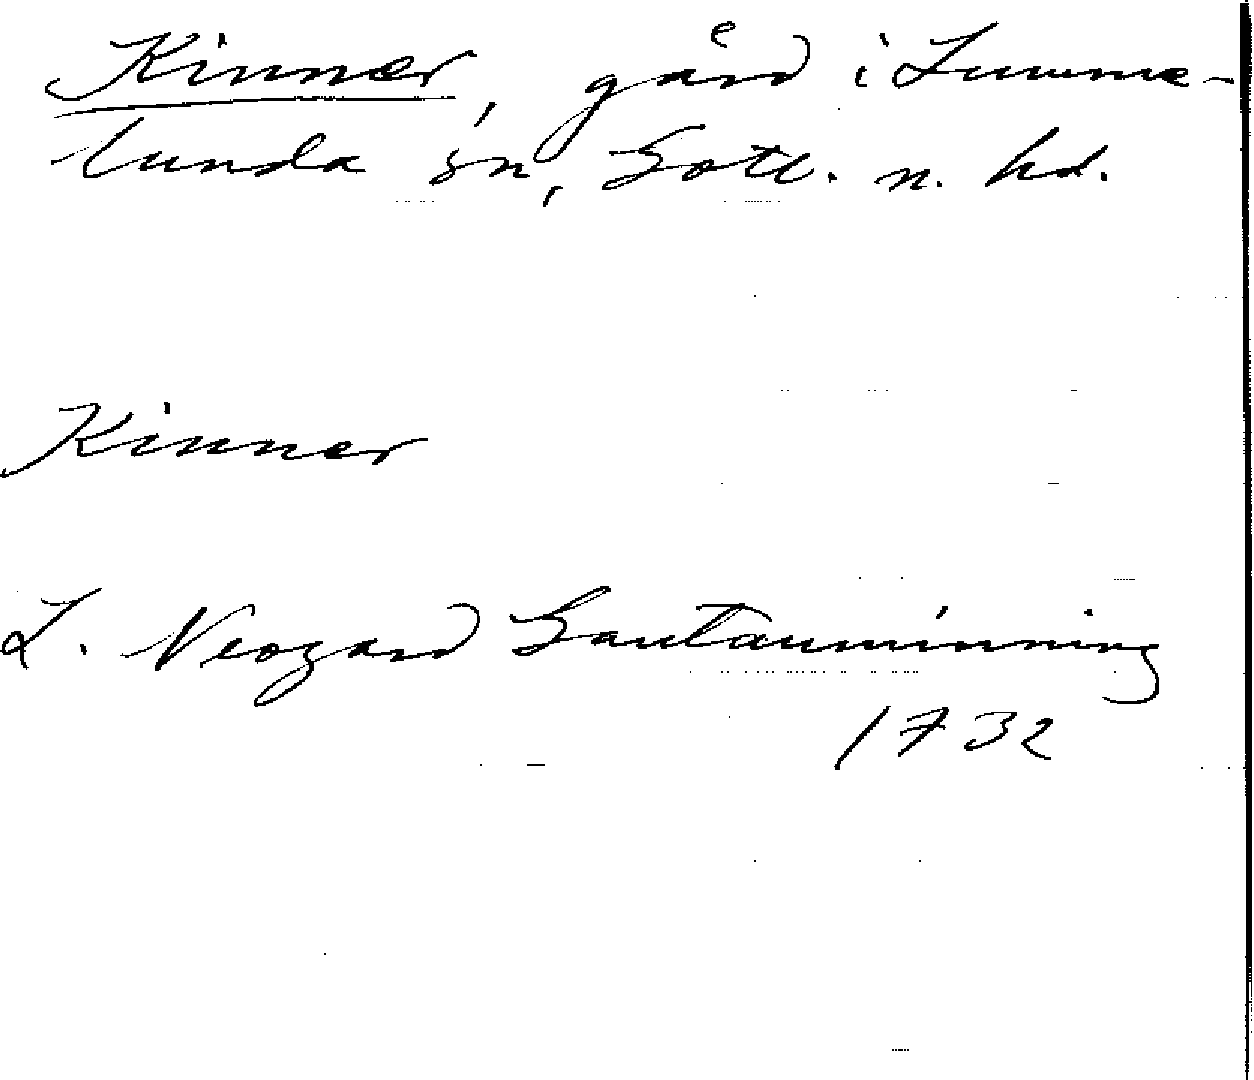 Kinner, gård i Lumme-
lunda sn, Gotl. n. hd.
Kinner
L. Neogard Gautauminning
1732